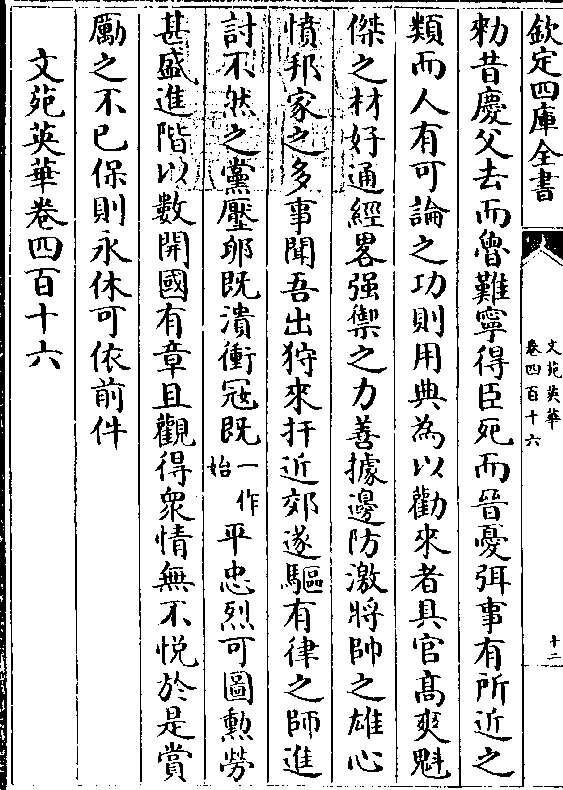 欽定四庫全書
文苑英華
卷四百十六
十二
勅昔慶父去而魯難寧得臣死而晉憂弭事有所近之
類而人有可論之功則用典為以勸來者具官髙爽魁
傑之材好通經畧强禦之力善據邊防激將帥之雄心
憤邦家之多事聞吾出狩來扞近郊遂驅有律之師進
討不然之黨壓郍既潰衝冦既一作始平忠烈可圖勲勞
甚盛進階以數開國有章且觀得衆情無不悦於是賞
勵之不已保則永休可依前件
文苑英華卷四百十六